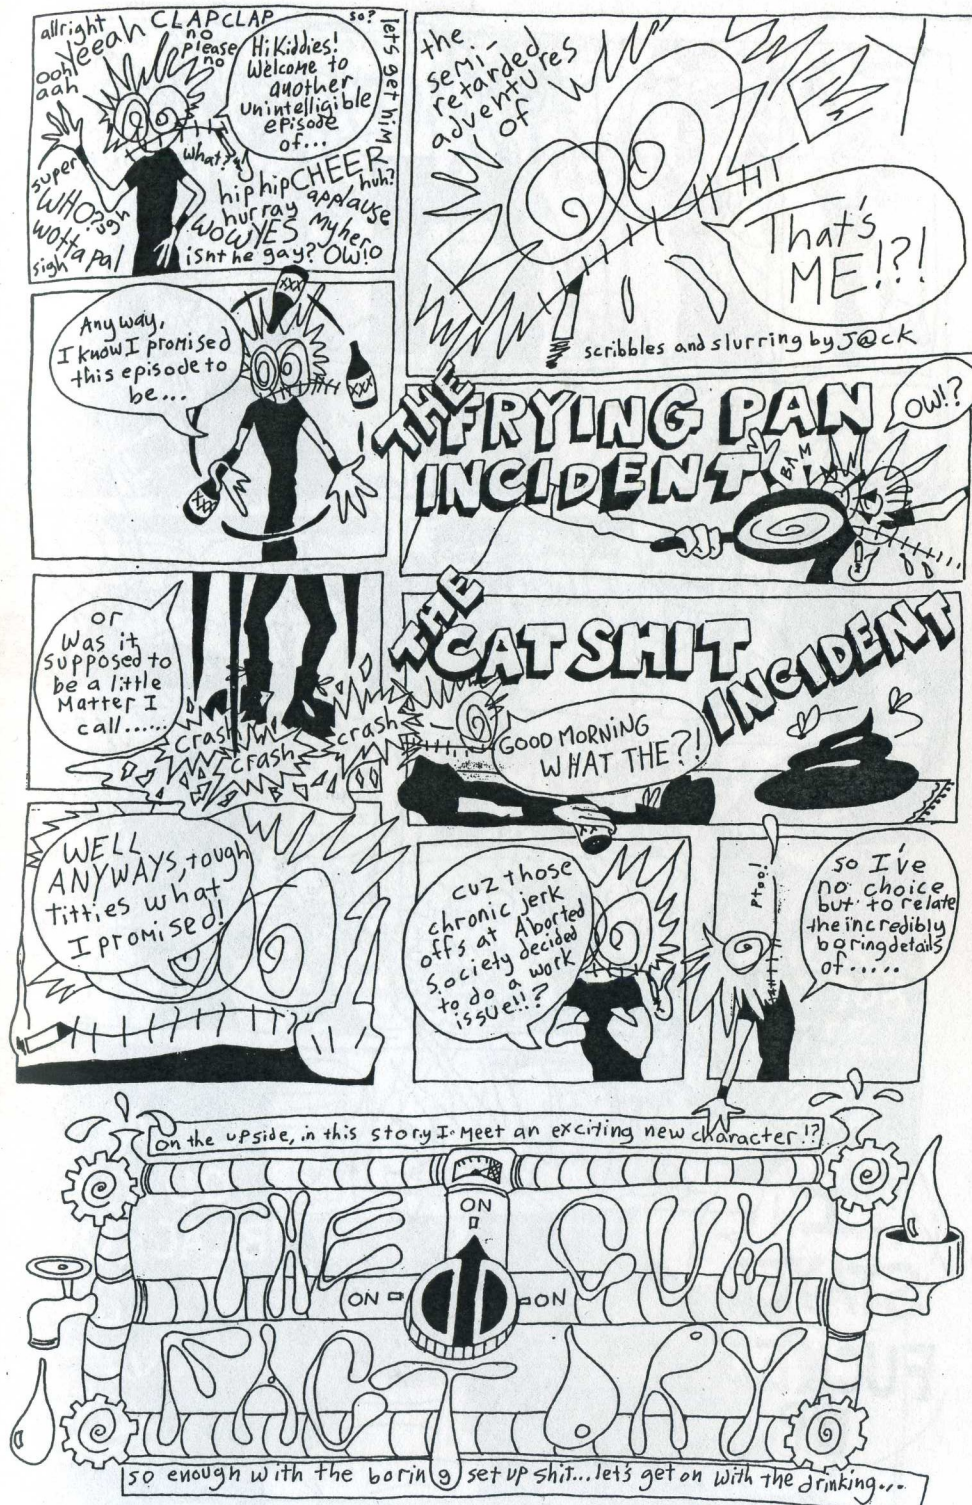 allright
yeeah
CLAP CLAP
no
please
no
so?
let's get him
ooh!
aah
Hi Kiddies!
Welcome to
another
unintelligible
episode
of...
what?
super
WHO?
ugh
wotta pal
sigh
hip hip CHEER
huh?
hurray
applause
WOW YES
My hero
isnt he gay? OW!O
the
semi-
retarded
adventures
of
WOOZEY
That's
ME!?!
scribbles and slurring by J@ck
Anyway,
I know I promised
this episode to
be...
XXX
XXX
XXX
THE
FRYING PAN
INCIDENT
BAM
OW!?
or
Was it
supposed to
be a little
Matter I
call......
crash
crash
crash
THE
CAT SHIT
INCIDENT
GOOD MORNING
WHAT THE?!
WELL
ANYWAYS, tough
titties what
I promised!
cuz those
chronic jerk
offs at Aborted
society decided
to do a work
issue!!?
Ptoo!
so I've
no choice
but to relate
the incredibly
boring details
of.....
on the upside, in this story I meet an exciting new character!?
THE CUM
FACTORY
ON
ON
ON
so enough with the boring set up shit...let's get on with the drinking...